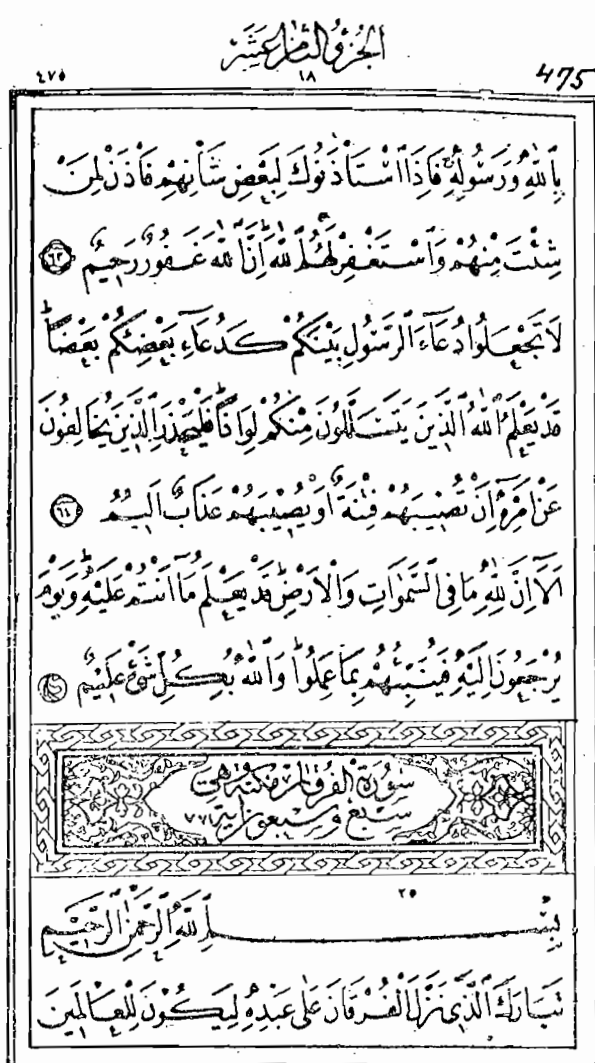 الجزؤ الثامن عشر
٤٧٥ ١٨ 475
بِاللّٰهِ وَرَسُولِهٖۚ فَاِذَا اسْتَأْذَنُوكَ لِبَعْضِ شَأْنِهِمْ فَأْذَنْ لِمَنْ
شِئْتَ مِنْهُمْ وَاسْتَغْفِرْ لَهُمُ اللّٰهَۜ اِنَّ اللّٰهَ غَفُورٌ رَحِيمٌ ٦٣
لَا تَجْعَلُوا دُعَٓاءَ الرَّسُولِ بَيْنَكُمْ كَدُعَٓاءِ بَعْضِكُمْ بَعْضًاۜ
قَدْ يَعْلَمُ اللّٰهُ الَّذِينَ يَتَسَلَّلُونَ مِنْكُمْ لِوَاذًاۚ فَلْيَحْذَرِ الَّذِينَ يُخَالِفُونَ
عَنْ اَمْرِهٖٓ اَنْ تُصِيبَهُمْ فِتْنَةٌ اَوْ يُصِيبَهُمْ عَذَابٌ اَلِيمٌ ٦٤
اَلَٓا اِنَّ لِلّٰهِ مَا فِي السَّمٰوَاتِ وَالْاَرْضِۜ قَدْ يَعْلَمُ مَٓا اَنْتُمْ عَلَيْهِۜ وَيَوْمَ
يُرْجَعُونَ اِلَيْهِ فَيُنَبِّئُهُمْ بِمَا عَمِلُواۜ وَاللّٰهُ بِكُلِّ شَيْءٍ عَلِيمٌ
سورة الفرقان مكية وهي
سبع وسبعون اية ٧٧
٢٥
بِسْمِ اللّٰهِ الرَّحْمٰنِ الرَّحِيمِ
تَبَارَكَ الَّذِي نَزَّلَ الْفُرْقَانَ عَلٰى عَبْدِهٖ لِيَكُونَ لِلْعَالَمِينَ